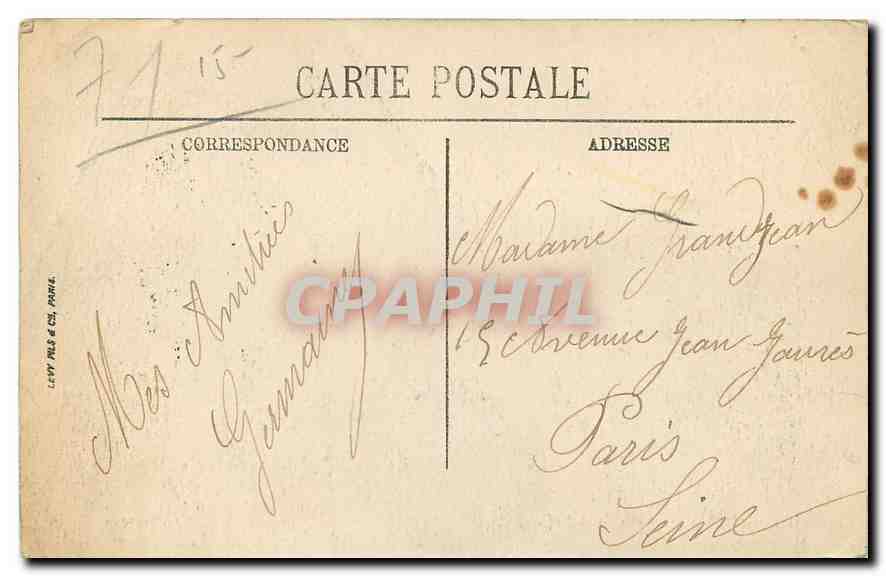 71 15-
CARTE POSTALE
CORRESPONDANCE
ADRESSE
Mes Amitiés
Germaine
Madame Grandjean
15 Avenue Jean Jaurès
Paris
Seine
LEVY FILS & Cie, PARIS.
CPAPHIL